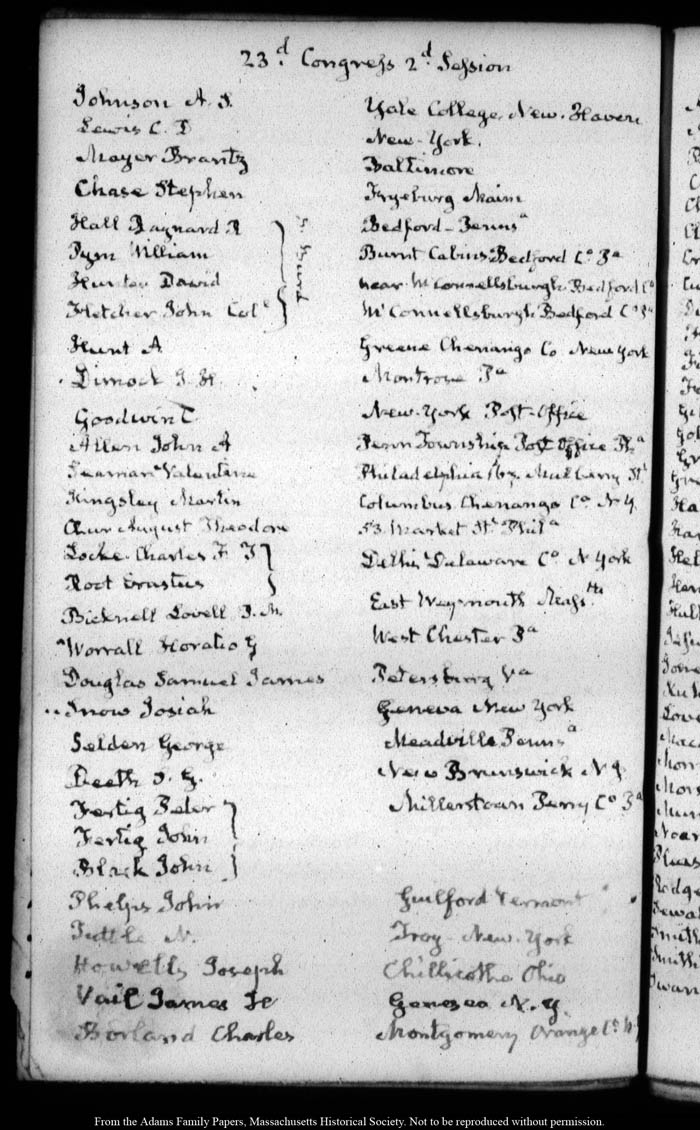 23.d Congress 2.d Session
Johnson A. S. Yale College, New-Haven
Lewis C. D New-York.
Mayer Brantz Baltimore
Chase Stephen Fryeburg Maine
Hall Baynard R Bedford-Penns.a
Pym William Burnt Cabins-Bedford C.o P.a
Hunter David near McConnellsburgh Bedford C.o
Fletcher John Col.l McConnellsburgh Bedford C.o P.a
Hunt A Greene Chenango Co. New York
Dimock J. H. Montrose P.a
Goodwin T New-York Post-Office
Allen John A Penn Township Post Office Ph.a
Seaman Valentine Philadelphia Mulberry St
Kingsley Martin Columbus Chenango C.o N Y.
August Theodore 53. Market St. Phil.a
Locke Charles F. Delhi Delaware C.o N York
Root Erastus
Bicknell Lovell East Weymouth Mass.tts
Worrall Horatio G West Chester P.a
Douglas Samuel James Petersburg V.a
Snow Josiah Geneva New York
Selden George Meadville Penns.a
Deeth S. G. New Brunswick N J.
Fertig Peter Millerstown Perry C.o P.a
Fertig John
Black John
Phelps John Guilford Vermont
Tuttle N. Troy-New-York
Howells Joseph Chillicothe Ohio
Vail James Geneseo N. Y.
Borland Charles Montgomery Orange C.o N.Y
From the Adams Family Papers, Massachusetts Historical Society. Not to be reproduced without permission.